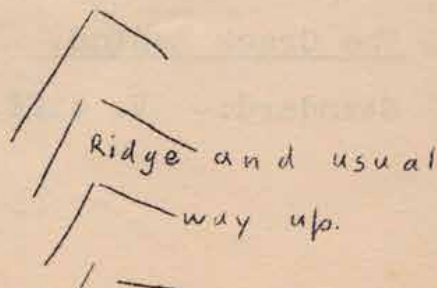 Ridge and usual
way up.